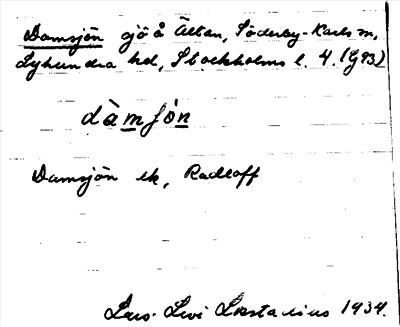 Damsjön sjö å Ältan, Söderby-Karls sn,
Lyhundra hd, Stockholms l. 4. (G93)
dàmʃò̱n
Damsjön ek, Radloff
Lars Levi Læstadius 1934.